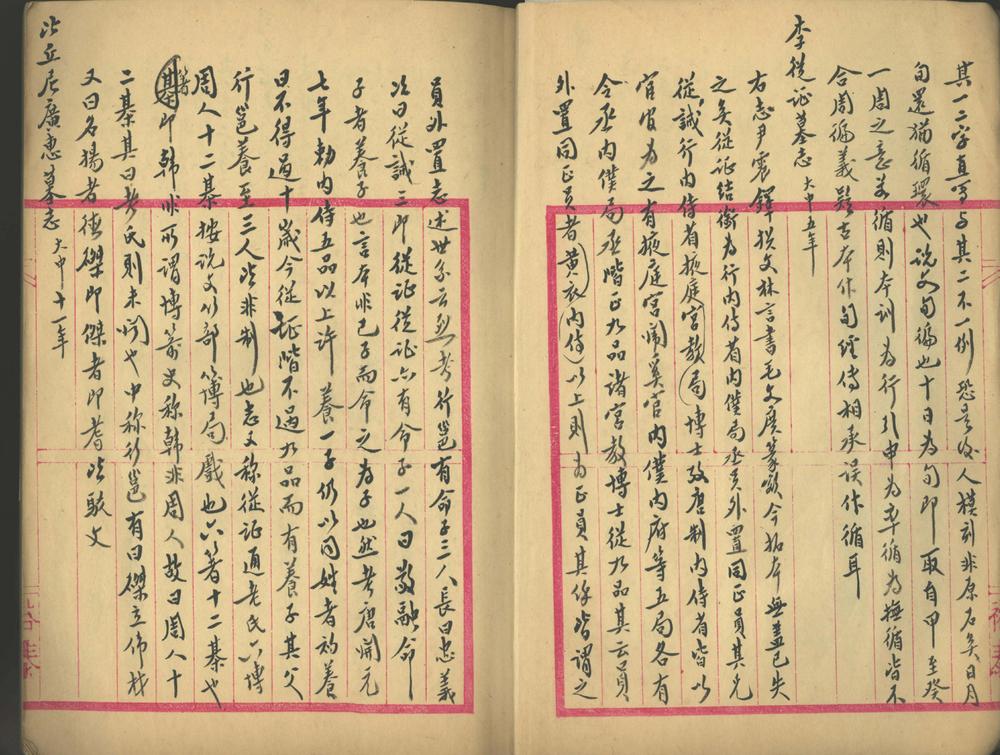 其一二字直寫与其二不一例恐是後人模刻非原石矣日月
旬還猶循環也说文旬徧也十日為旬即取自甲至癸
一周之意若循則本训為行引申為率循為撫循皆不
合周徧義疑古本作旬經傳相承误作循耳
李從证墓志大中五年
右志尹震鐸撰文林言書毛文廣篆嶔今拓本無蓋已失
之矣從证结銜為行内侍省内僕局丞員外置同正員其兄
從诚行内侍省掖庭宫教局博士攷唐制内侍省皆以
宦官為之有掖庭宫闱奚官内僕内府等五局各有
令丞内僕局丞階正九品诸宫教博士從九品其云員
外置同正員者黄衣内侍以上則為正員其馀皆谓之
員外置志述世系云烈考行邕有命子三人長曰忠義
次曰從诚三即從证從证六有命子一人曰敬融命
子者養子也言本非己子而命之為子也然考唐開元
七年勅内侍五品以上许養一子仍以同姓者初養
日不得過十歲今從证階不過九品而有養子其父
行邕養至三人皆非制也志又称從证通老氏六博
周人十二棊按说文以部簙局戲也六箸十二棊也
棊即韩非所谓博箭史称韩非周人故曰周人十
二棊其曰老氏則未闻也中称行邕有曰傑立伟材
又曰名揚者德傑即傑者即耆皆驳文
比丘尼廣惠墓志大中十一年